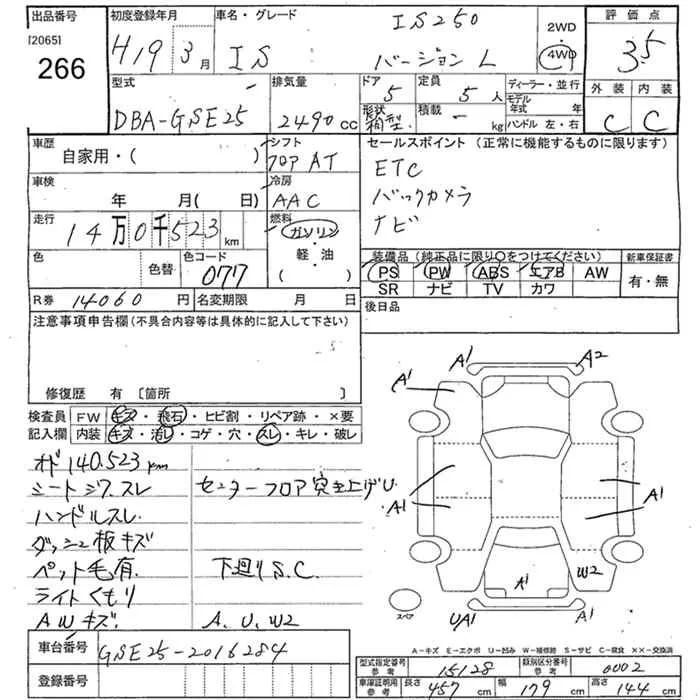 出品番号 初度登録年月 車名・グレード IS250 2WD 評価点
[2065] 266 H19 3月 IS バージョン L 4WD 3.5
型式 排気量 ドア 5 定員 5人 ディーラー・並行 外装 内装
DBA-GSE25 2490cc 形状 箱型 積載 - kg モデル年式 年 ハンドル 左・右 C C
車歴 シフト セールスポイント (正常に機能するものに限ります)
自家用・( ) フロア AT ETC
車検 冷房 バックカメラ
年 月( 日) AAC ナビ
走行 燃料
14万0千523km ガソリン
色 色替 色コード 077 軽・油 ( )
装備品(純正品に限り○をつけてください) 新車保証書
PS PW ABS エアB AW 有・無
SR ナビ TV カワ
R券 14060円 名変期限 月 日 後日品
注意事項申告欄(不具合内容等は具体的に記入して下さい)
修復歴 有 〔箇所 〕
検査員 FW キズ・飛石・ヒビ割・リペア跡・×要
記入欄 内装 キズ・汚れ・コゲ・穴・スレ・キレ・破レ
オド 140.523km
シートシワ.スレ センターフロア突き上げU
ハンドルスレ
ダッシュ板キズ
ペット毛有. 下廻りS.C.
ライトくもり
AWキズ. A.U.W2
車台番号 GSE25-2016284
登録番号
A1 A2
A1
A1 A1
A1 W2
スペア UA1 A1
A-キズ E-エクボ U-凹み W-補修跡 S-サビ C-腐食 XX-交換済
型式指定番号 参考 15128 類別区分番号 参考 0002
車庫証明用 参考 長さ 457cm 幅 179cm 高さ 144cm